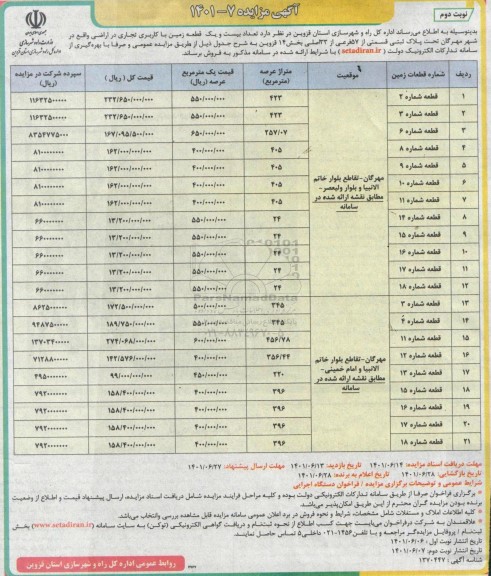 آگهی مزایده ۷-۱۴۰۱
نوبت دوم
بدینوسیله به اطلاع می‌رساند اداره کل راه و شهرسازی استان قزوین در نظر دارد تعداد بیست و یک قطعه زمین با کاربری تجاری در اراضی واقع در
شهر مهرگان تحت پلاک ثبتی قسمتی از ۵۷فرعی از ۳۳اصلی بخش۱۴ قزوین به شرح جدول ذیل از طریق مزایده عمومی و صرفا با بهره‌گیری از
سامانه تدارکات الکترونیک دولت (setadiran.ir) با شرایط ارائه شده در سامانه مذکور به فروش برساند.
ردیف شماره قطعات زمین موقعیت متراژ عرصه (مترمربع) قیمت یک مترمربع عرصه (ریال) قیمت کل (ریال) سپرده شرکت در مزایده (ریال)
۱ قطعه شماره ۲ ۴۲۳ ۵۵۰/۰۰۰/۰۰۰ ۲۳۲/۶۵۰/۰۰۰/۰۰۰ ۱۱۶۳۲۵۰۰۰۰۰
۲ قطعه شماره ۳ ۴۲۳ ۵۵۰/۰۰۰/۰۰۰ ۲۳۲/۶۵۰/۰۰۰/۰۰۰ ۱۱۶۳۲۵۰۰۰۰۰
۳ قطعه شماره ۶ ۲۵۷/۰۷ ۶۵۰/۰۰۰/۰۰۰ ۱۶۷/۰۹۵/۵۰۰/۰۰۰ ۸۳۵۴۷۷۵۰۰۰
۴ قطعه شماره ۸ ۴۰۵ ۴۰۰/۰۰۰/۰۰۰ ۱۶۲/۰۰۰/۰۰۰/۰۰۰ ۸۱۰۰۰۰۰۰۰۰
۵ قطعه شماره ۹ ۴۰۵ ۴۰۰/۰۰۰/۰۰۰ ۱۶۲/۰۰۰/۰۰۰/۰۰۰ ۸۱۰۰۰۰۰۰۰۰
۶ قطعه شماره ۱۰ ۴۰۵ ۴۰۰/۰۰۰/۰۰۰ ۱۶۲/۰۰۰/۰۰۰/۰۰۰ ۸۱۰۰۰۰۰۰۰۰
۷ قطعه شماره ۱۱ ۴۰۵ ۴۰۰/۰۰۰/۰۰۰ ۱۶۲/۰۰۰/۰۰۰/۰۰۰ ۸۱۰۰۰۰۰۰۰۰
مهرگان-تقاطع بلوار خاتم
الانبیا و بلوار ولیعصر-
مطابق نقشه ارائه شده در
سامانه
۸ قطعه شماره ۱۴ ۲۴ ۵۵۰/۰۰۰/۰۰۰ ۱۳/۲۰۰/۰۰۰/۰۰۰ ۶۶۰۰۰۰۰۰۰
۹ قطعه شماره ۱۵ ۲۴ ۵۵۰/۰۰۰/۰۰۰ ۱۳/۲۰۰/۰۰۰/۰۰۰ ۶۶۰۰۰۰۰۰۰
۱۰ قطعه شماره ۱۶ ۲۴ ۵۵۰/۰۰۰/۰۰۰ ۱۳/۲۰۰/۰۰۰/۰۰۰ ۶۶۰۰۰۰۰۰۰
۱۱ قطعه شماره ۱۷ ۲۴ ۵۵۰/۰۰۰/۰۰۰ ۱۳/۲۰۰/۰۰۰/۰۰۰ ۶۶۰۰۰۰۰۰۰
۱۲ قطعه شماره ۱۸ ۲۴ ۵۵۰/۰۰۰/۰۰۰ ۱۳/۲۰۰/۰۰۰/۰۰۰ ۶۶۰۰۰۰۰۰۰
۱۳ قطعه شماره ۳ ۳۴۵ ۵۰۰/۰۰۰/۰۰۰ ۱۷۲/۵۰۰/۰۰۰/۰۰۰ ۸۶۲۵۰۰۰۰۰۰
۱۴ قطعه شماره ۴ ۳۴۵ ۵۵۰/۰۰۰/۰۰۰ ۱۸۹/۷۵۰/۰۰۰/۰۰۰ ۹۴۸۷۵۰۰۰۰۰
۱۵ قطعه شماره ۱۱ ۴۵۶/۷۸ ۶۰۰/۰۰۰/۰۰۰ ۲۷۴/۰۶۸/۰۰۰/۰۰۰ ۱۳۷۰۳۴۰۰۰۰۰
۱۶ قطعه شماره ۱۲ ۳۵۶/۴۴ ۴۰۰/۰۰۰/۰۰۰ ۱۴۲/۵۷۶/۰۰۰/۰۰۰ ۷۱۲۸۸۰۰۰۰۰
۱۷ قطعه شماره ۱۳ ۲۲۰ ۴۵۰/۰۰۰/۰۰۰ ۹۹/۰۰۰/۰۰۰/۰۰۰ ۴۹۵۰۰۰۰۰۰۰
۱۸ قطعه شماره ۱۵ ۳۹۶ ۴۰۰/۰۰۰/۰۰۰ ۱۵۸/۴۰۰/۰۰۰/۰۰۰ ۷۹۲۰۰۰۰۰۰۰
۱۹ قطعه شماره ۱۶ ۳۹۶ ۴۰۰/۰۰۰/۰۰۰ ۱۵۸/۴۰۰/۰۰۰/۰۰۰ ۷۹۲۰۰۰۰۰۰۰
۲۰ قطعه شماره ۱۷ ۳۹۶ ۴۰۰/۰۰۰/۰۰۰ ۱۵۸/۴۰۰/۰۰۰/۰۰۰ ۷۹۲۰۰۰۰۰۰۰
۲۱ قطعه شماره ۱۸ ۳۹۶ ۴۰۰/۰۰۰/۰۰۰ ۱۵۸/۴۰۰/۰۰۰/۰۰۰ ۷۹۲۰۰۰۰۰۰۰
مهرگان-تقاطع بلوار خاتم
الانبیا و امام خمینی-
مطابق نقشه ارائه شده در
سامانه
مهلت دریافت اسناد مزایده: ۱۴۰۱/۰۶/۱۴ تاریخ بازدید: ۱۴۰۱/۰۶/۱۳ مهلت ارسال پیشنهاد: ۱۴۰۱/۰۶/۲۷
تاریخ بازگشایی: ۱۴۰۱/۰۶/۲۸ تاریخ اعلام به برنده: ۱۴۰۱/۰۶/۲۸
شرایط عمومی و توضیحات برگزاری مزایده / فراخوان دستگاه اجرایی
* برگزاری فراخوان صرفا از طریق سامانه تدارکات الکترونیکی دولت بوده و کلیه مراحل فرایند مزایده شامل دریافت اسناد مزایده، ارسال پیشنهاد قیمت و اطلاع از وضعیت
برنده بودن مزایده گران محترم از این طریق امکان‌پذیر می‌باشد.
* کلیه اطلاعات املاک و مستغلات شامل مشخصات، شرایط و نحوه فروش در برد اعلان عمومی سامانه مزایده قابل مشاهده بررسی وانتخاب می‌باشد.
* علاقمندان به شرکت درفراخوان می‌بایست جهت کسب اطلاع از نحوه ثبت‌نام و دریافت گواهی الکترونیکی (توکن) به سایت سامانه (www.setadiran.ir) بخش
ثبت‌نام / پروفایل مزایده‌گر مراجعه و یا تلفن ۱۴۵۶-۰۲۱ داخلی۵ تماس حاصل نمایند.
تاریخ انتشار نوبت اول: ۱۴۰۱/۰۶/۰۶
تاریخ انتشار نوبت دوم: ۱۴۰۱/۰۶/۰۷
شناسه آگهی: ۱۳۷۰۴۴۷
روابط عمومی اداره کل راه و شهرسازی استان قزوین
ParsNamadData